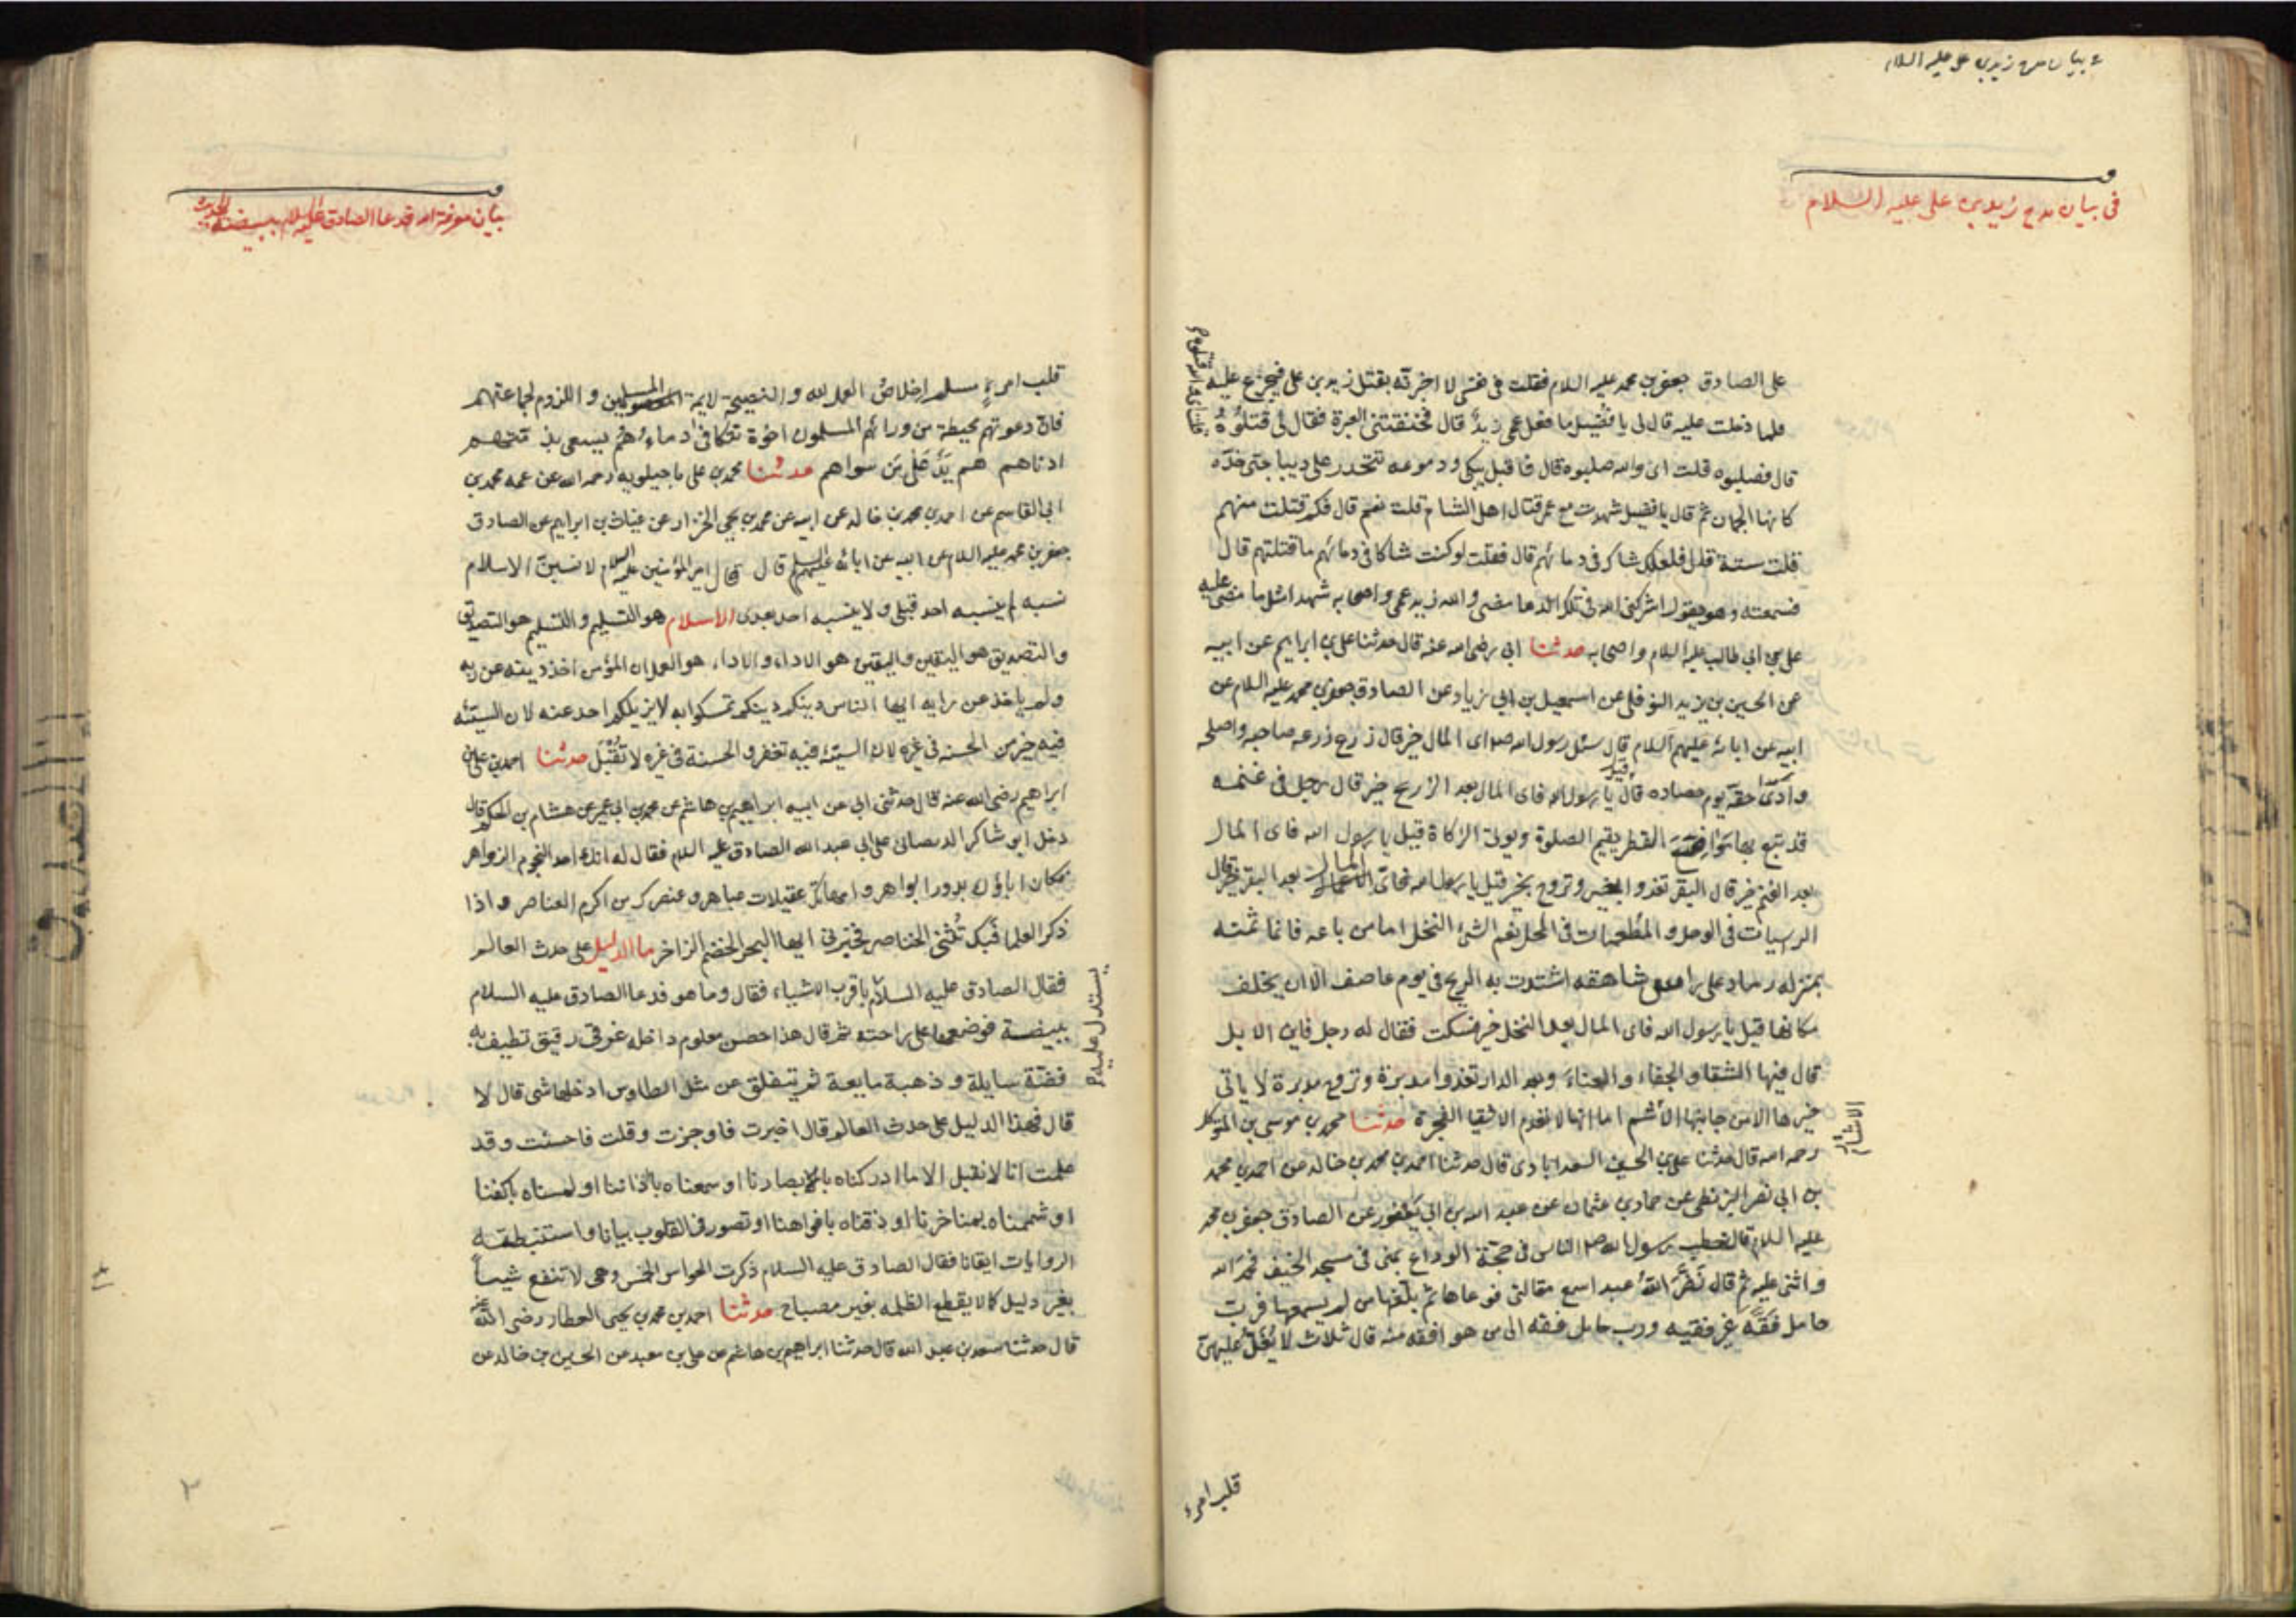 في بيان مدح زيد بن علي عليه السلام
في بيان مدح زيد بن علي عليه السلام
على الصادق جعفر بن محمد عليه السلام فقلت في نفسي لا اخبرته بقتل زيد بن علي فيجزع عليه
فلما دخلت عليه قال لي يا فضيل ما فعل عمي زيدٌ قال فخنقتني العبرة فقال لي قتلوهُ
قلت اي والله قتلوه
قال فصلبوه قلت اي والله صلبوه قال فاقبل يبكي ودموعه تتحدر على ديباجتي خدّه
كانها الجمان ثم قال يا فضيل شهدت مع عمي قتال اهل الشام قلت نعم قال فكم قتلت منهم
قلت ستة قال فلعلك شاك في دمائهم قال فقلت لو كنت شاكا في دمائهم ما قتلتهم قال
فسمعته وهو يقول اشركني الله في تلك الدما مضى والله زيد عمي واصحابه شهدا مثل ما مضى عليه
علي بن ابي طالب عليه السلام واصحابه حدثنا ابي رضي الله عنه قال حدثنا علي بن ابراهيم عن ابيه
عن الحسين بن يزيد النوفلي عن اسمعيل بن ابي زياد عن الصادق جعفر بن محمد عليه السلام عن
ابيه عن ابائه عليهم السلام قال سئل رسول الله ص اى المال خير قال زرع زرعه صاحبه واصلحه
وادّى حقه يوم حصاده قيل يا رسول الله فاى المال بعد الزرع خير قال رجل في غنمه
قد تبع بها مَواضع القطر يقيم الصلوة ويوتى الزكاة قيل يا رسول الله فاى المال
بعد الغنم خير قال البقر تغدو بخير وتروح بخير قيل يا رسول الله فاى المال بعد البقر خير قال
الرسيات في الوحل والمطعمات في المحل نعم الشئ النخل اما من باعه فانما ثمنه
بمنزله رماد على راس شاهقه اشتدت به الريح في يوم عاصف الا ان يخلف
مكانها قيل يا رسول الله فاى المال بعد النخل خير فسكت فقال له رجل فاين الابل
قال فيها الشقا والجفاء والعناء وبعد الدار تغدوا مدبرة وتروح مدبرة لا ياتى
خيرها الا من جانبها الأشم اما انها لا تعدم الاشقيا الفجرة حدثنا محمد بن موسى بن المتوكل
رحمه الله قال حدثنا علي بن الحسين السعدابادى قال حدثنا احمد بن محمد بن خالد عن احمد بن محمد
بن ابي نصر البزنطي عن حماد بن عثمان عن عبد الله بن ابي يَعْفور عن الصادق جعفر بن محمد
عليه السلام قال خطب رسول الله ص الناس في حجة الوداع بمنى في مسجد الخيف فحمد الله
واثنى عليه ثم قال نَضَّرَ اللهُ عبدا سمع مقالتي فوعاها ثم بلغها من لم يسمعها فرب
حامل فقه غير فقيه ورب حامل فقه الى من هو افقه منه قال ثلاث لا يُغِلّ عليهن
قلب امرء
بيان معرفة الله قد عا الصادق عليه السلام ببيضة
قلب امرءٍ مسلم اخلاصُ العمل لله والنصيحة لايمة المسلمين واللزوم لجماعتهم
فان دعوتهم محيطة من ورائهم المسلمون اخوة تتكافى دماءُهم يسعى بذمتهم
ادناهم هم يَدٌ عَلى من سواهم حدثنا محمد بن علي ماجيلويه رحمه الله عن عمه محمد بن
ابي القاسم عن احمد بن محمد بن خالد عن ابيه عن محمد بن يحيى الخزاز عن غياث بن ابراهيم عن الصادق
جعفر بن محمد عليه السلام عن ابيه عن ابائه عليهم السلم قال قال امير المؤمنين عليه السلام لانسبنّ الاسلام
نسبه لم ينسبه احد قبلي ولا ينسبه احد بعدى الاسلام هو التسليم والتسليم هو التصديق
والتصديق هو اليقين واليقين هو الاداء والاداء هو العمل ان المؤمن اخذ دينه عن ربه
ولم ياخذ عن رايه ايها الناس دينكم دينكم تمسكوا به لا يزيلكم احد عنه لان السيئه
فيه خير من الحسنه في غيره لان السيئه فيه تغفر والحسنة في غيره لا تُقْبَل حدثنا احمد بن علي بن
ابراهيم رضي الله عنه قال حدثني ابي عن ابيه ابراهيم بن هاشم عن محمد بن ابي عمير عن هشام بن الحكم قال
دخل ابو شاكر الديصاني على ابي عبد الله الصادق عليه السلام فقال له انك احد النجوم الزواهر
وكان اباؤك بدورا بواهر وامهاتك عقيلات عباهر وعنصرك من اكرم العناصر واذا
ذكر العلما فبك تُثنى الخناصر فخبرني ايها البحر الخضم الزاخر ما الدليل على حدث العالم
فقال الصادق عليه السلام باقرب الاشياء فقال وما هو فدعا الصادق عليه السلام
يستدل عليه
ببيضة فوضعها على راحته ثم قال هذا حصن ملموم داخله غرقئ رقيق تطيف به
فضّة سايلة وذهبة مايعة ثم تنفلق عن مثل الطاوس ادخلها شى قال لا
قال فهذا الدليل على حدث العالم قال اخبرت فاوجزت وقلت فاحسنت وقد
علمت انا لا نقبل الا ما ادركناه بابصارنا او سمعناه باذاننا او لمسناه باكفنا
او شممناه بمناخرنا او ذقناه بافواهنا او تصور في القلوب بيانا واستنبطته
الروايات ايقانا فقال الصادق عليه السلام ذكرت الحواس الخمس وهى لا تنفع شيئاً
بغير دليل كما لا يقطع الظلمه بغير مصباح حدثنا احمد بن محمد بن يحيى العطار رضى الله عنه
قال حدثنا سعد بن عبد الله قال حدثنا ابراهيم بن هاشم عن علي بن معبد عن الحسين بن خالد عن